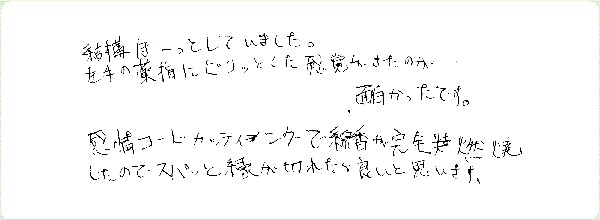 結構ぼーっとしていました。
左手の薬指にビリっとくた感覚がきたのが・
面白かったです。
感情コードカッティングで線香が完全燃焼
したのでスパッと縁が切れたら良いと思います。